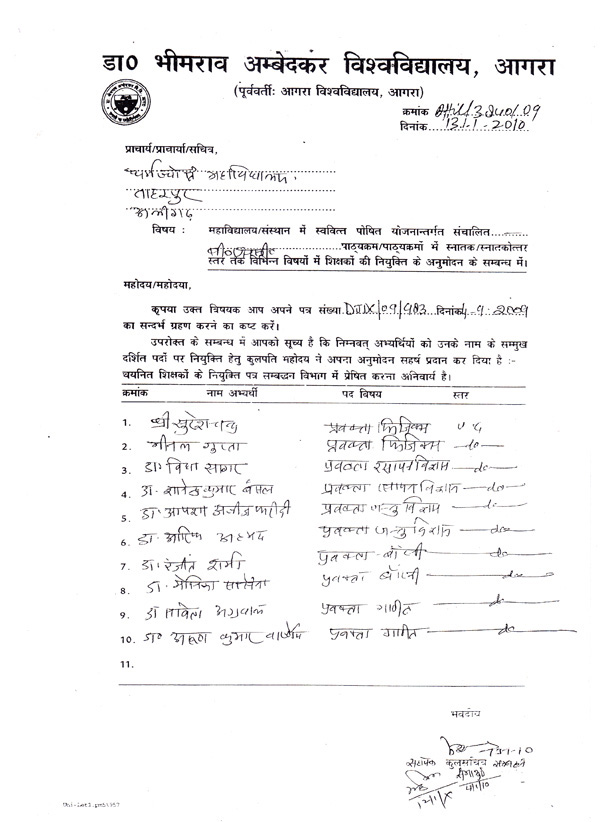 डा० भीमराव अम्बेदकर विश्वविद्यालय, आगरा
(पूर्ववर्तीः आगरा विश्वविद्यालय, आगरा)
क्रमांक
दिनांक 13.1.1-2010
प्राचार्य/प्राचार्या/सचिव,
ताहरपुर
अलीगढ़
विषय : महाविद्यालय/संस्थान में स्ववित्त पोषित योजनान्तर्गत संचालित
पाठ्यक्रम/पाठ्यक्रमों में स्नातक/स्नातकोत्तर
स्तर तक विभिन्न विषयों में शिक्षकों की नियुक्ति के अनुमोदन के सम्बन्ध में।
महोदय/महोदया,
कृपया उक्त विषयक आप अपने पत्र संख्या DJIX/09/983 दिनांक 4.9.2009
का सन्दर्भ ग्रहण करने का कष्ट करें।
उपरोक्त के सम्बन्ध में आपको सूच्य है कि निम्नवत् अभ्यर्थियों को उनके नाम के सम्मुख
दर्शित पदों पर नियुक्ति हेतु कुलपति महोदय ने अपना अनुमोदन सहर्ष प्रदान कर दिया है :-
चयनित शिक्षकों के नियुक्ति पत्र सम्बद्धन विभाग में प्रेषित करना अनिवार्य है।
क्रमांक नाम अभ्यर्थी पद विषय स्तर
1. श्री सुरेश चन्द्र प्रवक्ता फिजिक्स
2. गुप्ता प्रवक्ता फिजिक्स -do-
3. डा. विद्या सागर प्रवक्ता रसायन विज्ञान -do-
4. डा. कुमार बंसल प्रवक्ता रसायन विज्ञान -do-
5. डा. अजीज फरीदी प्रवक्ता जन्तु विज्ञान -do-
6. डा. अहमद प्रवक्ता जन्तु विज्ञान -do-
7. डा. रंजीत शर्मा प्रवक्ता बॉटनी -do-
8. डा. मोनिका सक्सेना प्रवक्ता बॉटनी -do-
9. डा. अग्रवाल प्रवक्ता गणित -do-
10. डा० अरुण कुमार वार्ष्णेय प्रवक्ता गणित -do-
11.
भवदीय
सहायक कुलसचिव